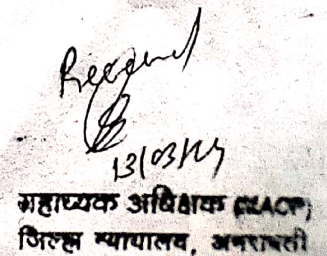 Received
13/03/24
सहाय्यक अधिक्षक (MACP)
जिल्हा न्यायालय, अमरावती